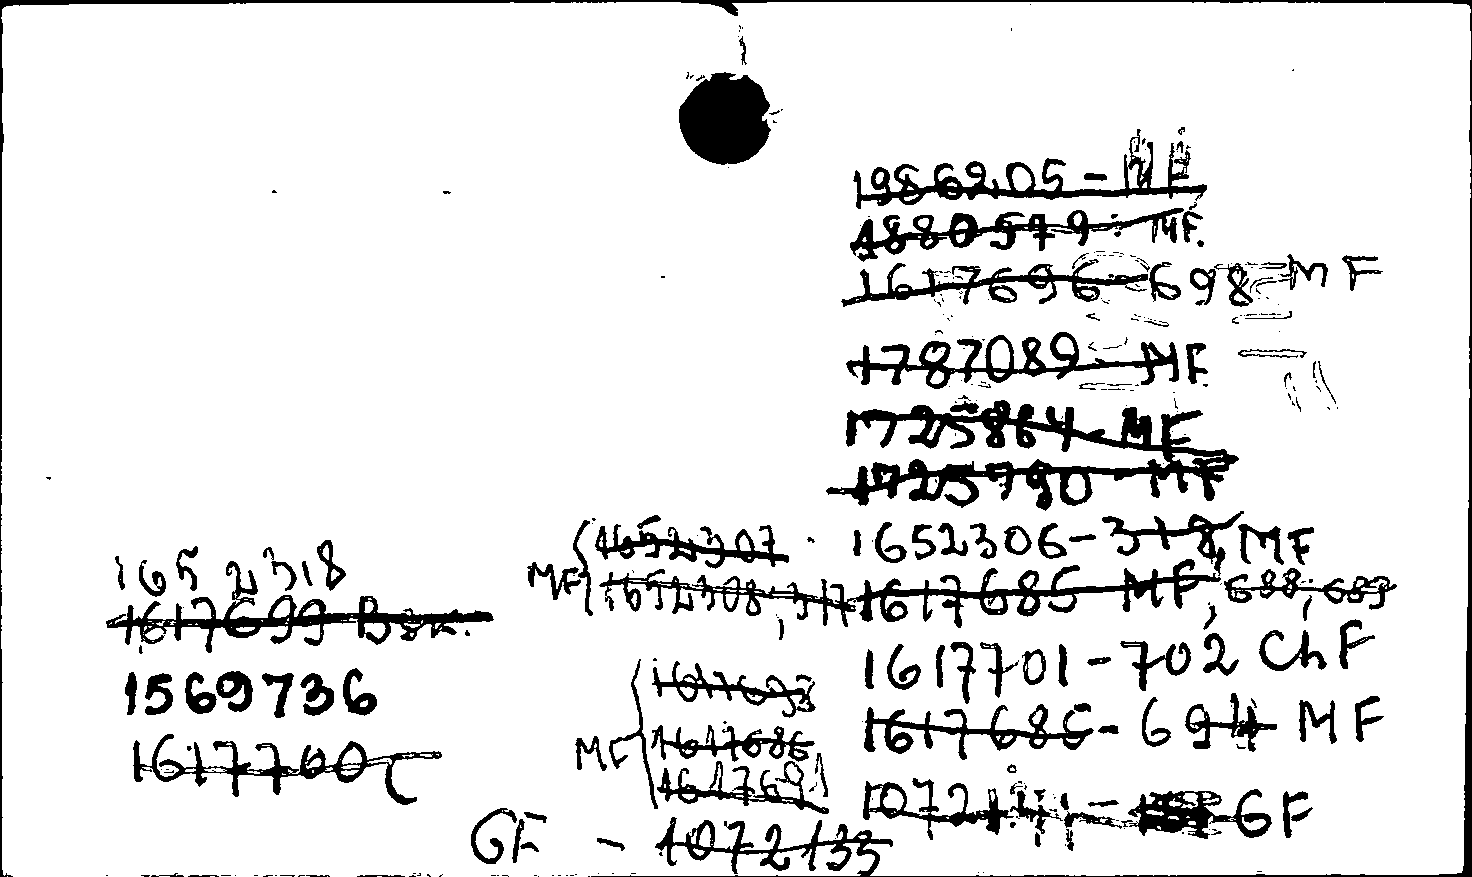 1986205 - MF
1880579 : MF.
1617696 - 698 MF
1787089 - MF
1725864 - MF
1725790 - MF
1652306 - 318, MF
1617685 MF, 688, 689
1617701 - 702 ChF
1617685 - 694 MF
GF
MF { 1652307
1652308, 317
MF {
1617686
1617691
GF - 1072133
1652318
1617699
1569736
1617700